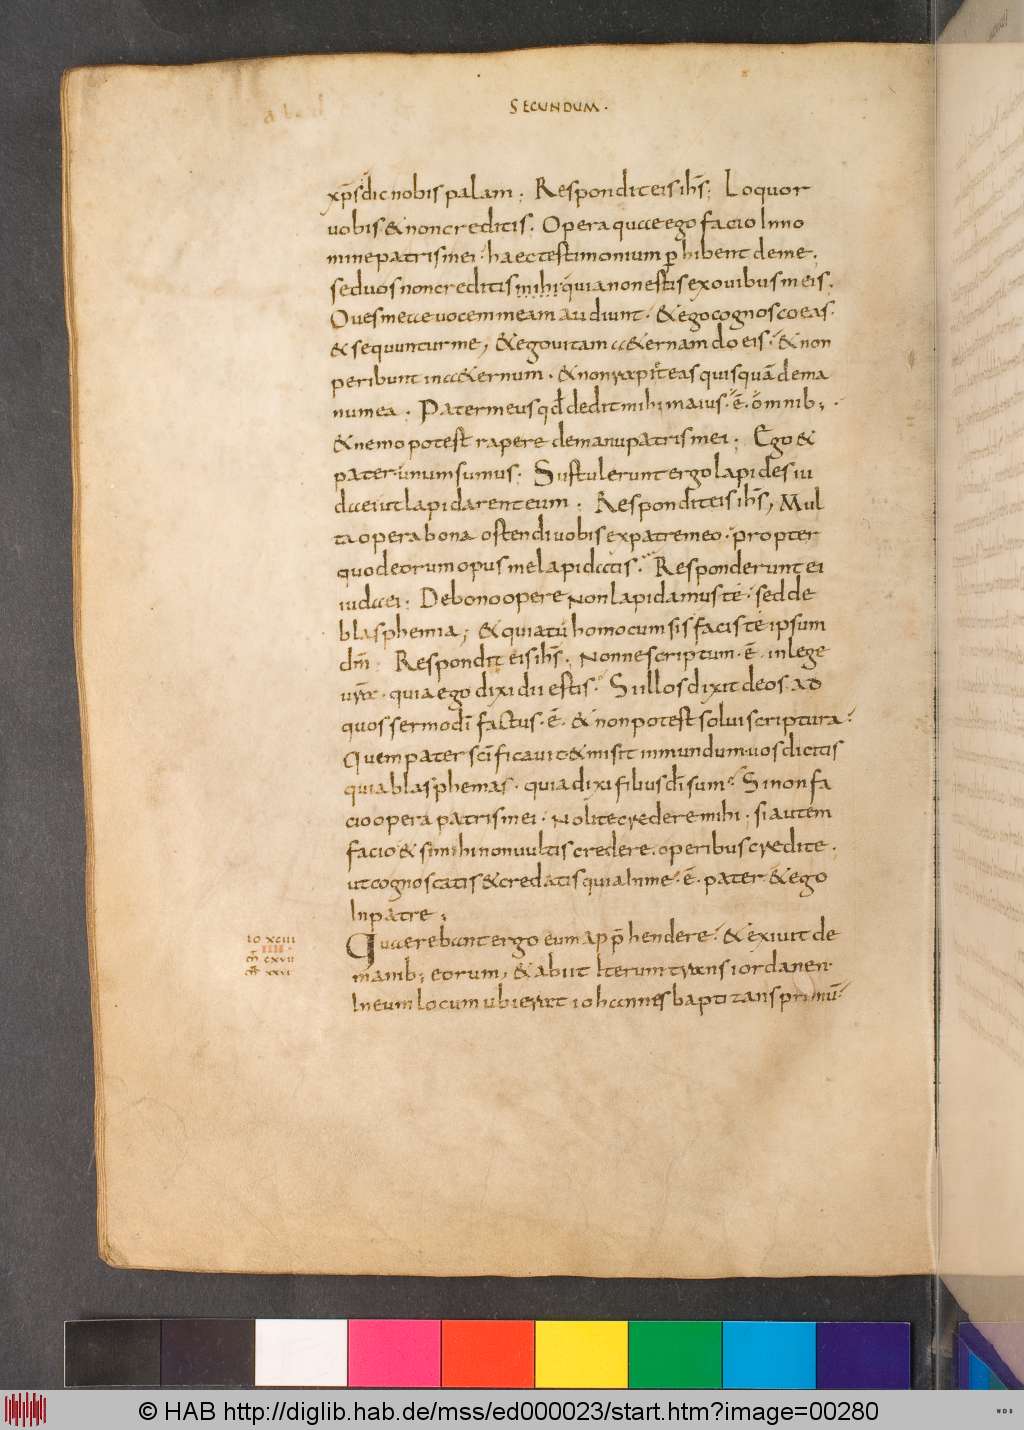 SECUNDUM·
xp̄s dic nobis palam; Respondit eis ih̄s; Loquor
uobis & non creditis. Opera quae ego facio Inno
mine patris mei· haec testimonium ꝑhibent deme;
sed uos non creditis mihi quia non estis exouibus meis.
Oues meae uocem meam audiunt· & ego cognosco eas·
& sequuntur me, & ego uitam aeternam do eis· & non
peribunt in aeternum· & non rapiet eas quisquā dema
nu mea· Pater meus qd̄ dedit mihi maius·ē· omnib;·
& nemo potest rapere demanu patris mei; Ego &
pater· unum sumus· Sustulerunt ergo lapides iu
daei ut lapidarent eum· Respondit eis ih̄s, Mul
ta opera bona ostendi uobis expatre meo· propter
quod eorum opus me lapidatis· Responderunt ei
iudaei; De bono opere Non lapidamus té· sed de
blasphemia, & quia tú homo cum sis facis té ipsum
dm̄; Respondit eis ih̄s; Nonne scriptum·ē· inlege
urā· quia ego dixi dii estis· Si illos dixit deos· ad
quos sermo dī factus·ē· & non potest solui scriptura·
Quem pater scīficauit & misit inmundum· uos dicitis
quia blasphemas· quia dixi filius dī sum· Si non fa
cio opera patris mei· Nolite credere mihi; si autem
facio & si mihi non uultis credere· operibus credite·
ut cognoscatis & credatis quia Inme·ē· pater & ego
Inpatre;
IO XCIII
IIII·
m̄ CXVII
m̄r XXVI
Quaerebant ergo eum app̄hendere· & exiuit de
manib; eorum, & abiit Iterum trans iordanen·
Ineum locum ubi erat iohannes baptizans primū·
© HAB http://diglib.hab.de/mss/ed000023/start.htm?image=00280
WDB